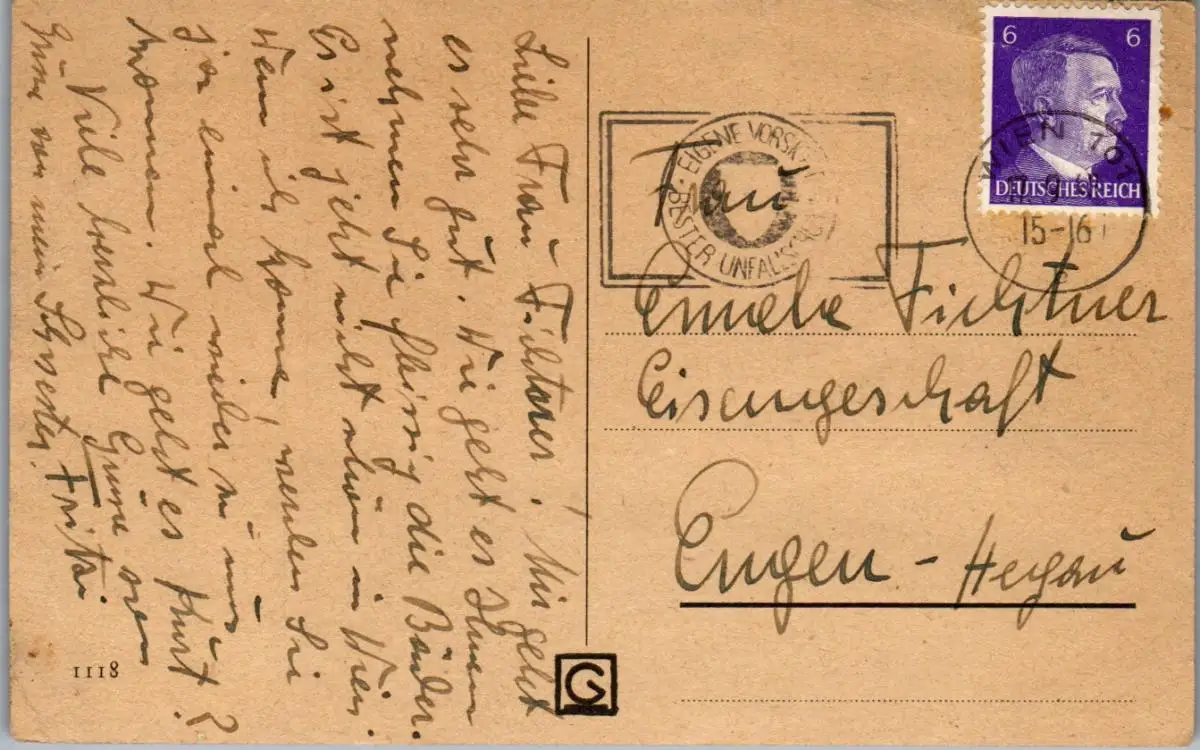 Liebe Frau Fichtner! Mir geht
es sehr gut. Wie geht es Ihnen
nehmen Sie fleissig die Bäder.
Es ist jetzt nicht schön in Wien.
Wenn ich komme, werden Sie
ja einmal wieder zu uns
kommen. Wie geht es Kurt?
Viele herzliche Grüsse von
Grüsse von mein Schwester. Fritzi.
1118
G
6 6
DEUTSCHES REICH
WIEN 101
15-16
EIGENE VORSICHT
BESTER UNFALLSCHUTZ
Frau
Emela Fichtner
Eisengeschaft
Engen - Hegau